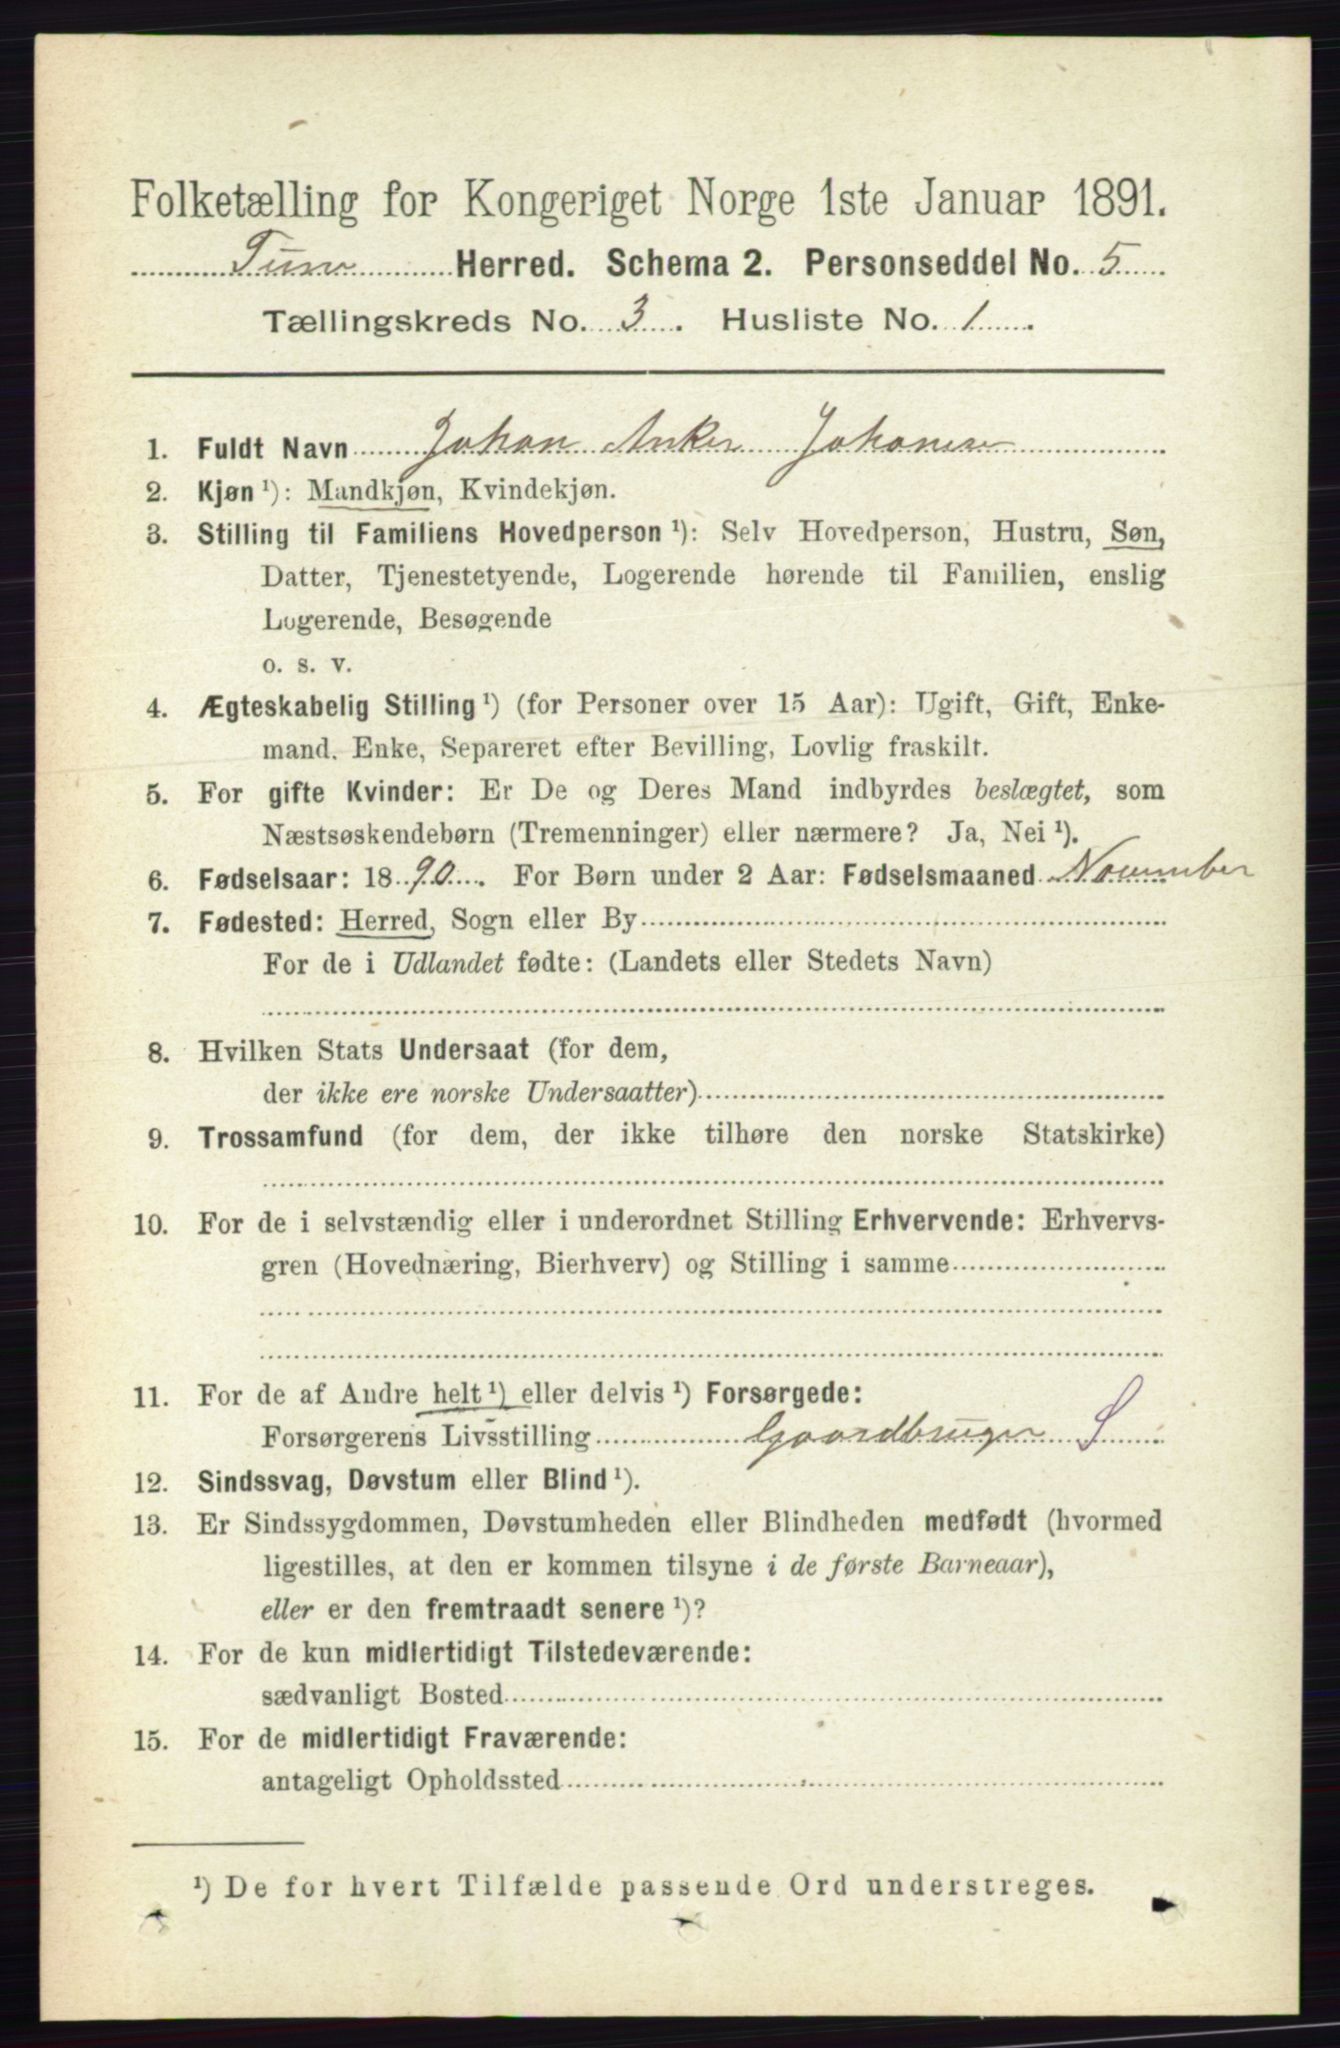 Folketælling for Kongeriget Norge 1ste Januar 1891.
Tune Herred. Schema 2. Personseddel No. 5
Tællingskreds No. 3. Husliste No. 1.
1. Fuldt Navn Johan Anker Johansen
2. Kjøn ¹): Mandkjøn, Kvindekjøn.
3. Stilling til Familiens Hovedperson ¹): Selv Hovedperson, Hustru, Søn,
Datter, Tjenestetyende, Logerende hørende til Familien, enslig
Logerende, Besøgende
o. s. v.
4. Ægteskabelig Stilling ¹) (for Personer over 15 Aar): Ugift, Gift, Enke-
mand, Enke, Separeret efter Bevilling, Lovlig fraskilt.
5. For gifte Kvinder: Er De og Deres Mand indbyrdes beslægtet, som
Næstsøskendebørn (Tremenninger) eller nærmere? Ja, Nei ¹).
6. Fødselsaar: 1890. For Børn under 2 Aar: Fødselsmaaned November
7. Fødested: Herred, Sogn eller By
For de i Udlandet fødte: (Landets eller Stedets Navn)
8. Hvilken Stats Undersaat (for dem,
der ikke ere norske Undersaatter)
9. Trossamfund (for dem, der ikke tilhøre den norske Statskirke)
10. For de i selvstændig eller i underordnet Stilling Erhvervende: Erhvervs-
gren (Hovednæring, Bierhverv) og Stilling i samme
11. For de af Andre helt ¹) eller delvis ¹) Forsørgede:
Forsørgerens Livsstilling Gaardbruger S
12. Sindssvag, Døvstum eller Blind ¹).
13. Er Sindssygdommen, Døvstumheden eller Blindheden medfødt (hvormed
ligestilles, at den er kommen tilsyne i de første Barneaar),
eller er den fremtraadt senere ¹)?
14. For de kun midlertidigt Tilstedeværende:
sædvanligt Bosted
15. For de midlertidigt Fraværende:
antageligt Opholdssted
¹) De for hvert Tilfælde passende Ord understreges.